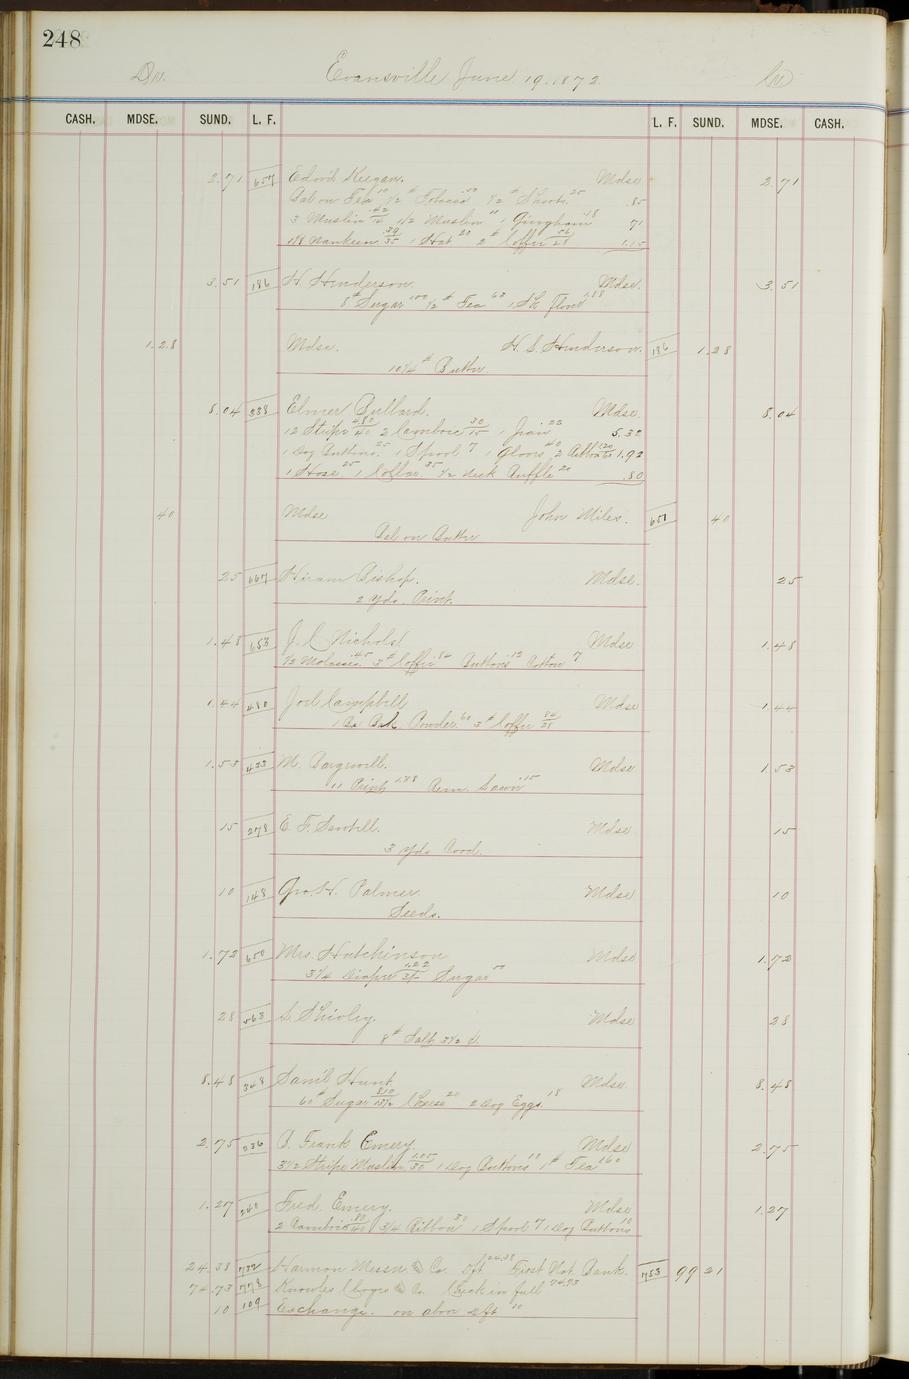 248
Dr. Evansville June 19. 1872. Cr
CASH. MDSE. SUND. L. F. L. F. SUND. MDSE. CASH.
2.71 657 Edwd Keegan. Mdse 2.71
Bal on Tea 10 1/2 # Tobacco 1/2 # Shot 25 .85
3 Muslin 42/14 1 1/2 Muslin 11 1 Gingham 18 71
1 1/8 Nankeen 39/35 1 Hat 20 2 # Coffee 56/28 1.15
3.51 186 H. Henderson. Mdse. 3.51
8 # Sugar 1.00 1/2 # Tea 63 1 Sk Flour 1.88
1.28 Mdse. H. S. Henderson. 186 1.28
10 1/4 # Butter
8.04 338 Elmer Bullard. Mdse. 8.04
12 Stripe 4.80/40 2 Cambric 30/15 1 22 5.32
1 Doz Buttons. 25 1 Spool 7 1 Gloves 40 2 Ribbon 120/60 1.92
1 Hose 25 1 Collar. 35 1/2 Neck Ruffle 20 .80
40 Mdse John Miles. 651 40
Bal on Butter
25 667 Hiram Bishop. Mdse. 25
2 Yds. Print.
1.48 653 J. C. Nichols Mdse 1.48
1/2 Molasses .45 3 # Coffee .84 Buttons .12 Cotton 7
1.44 480 Joel Campbell Mdse 1.44
1 Bak Powder 60 3 # Coffee 84/28
1.53 433 M. Mdse 1.53
11 Print 1.38 Rem. Lawn .15
15 278 E. F. Mdse 15
3 Yds Cord.
10 148 Geo. H. Palmer. Mdse 10
Seeds.
1.72 650 Mrs. Hutchinson Mdse 1.72
3 1/4 Diaper 1.22 Sugar 50
28 563 S. Shirley. Mdse 28
8 # Salt 3 1/2 c.
8.48 348 Saml Hunt. Mdse. 8.48
60 # Sugar 8.10/13 1/2 Cheese 20 2 Doz Eggs. 18
2.75 236 B. Frank Emery. Mdse 2.75
3 1/2 Stripe Muslin 1.05/30 1 Doz Buttons 10 1 # Tea 1.60
1.27 240 Fred. Emery. Mdse 1.27
2 Cambric 80/40 3/4 Ribbon 30 1 Spool 7 1 Doz Buttons 10
24 38 732 Harmon Messr & Co. dft 24.38 First Nat Bank. 753 99 21
74.73 778 Knowles & Co. Check in full 74.73
10 109 Exchange. on above dft 10